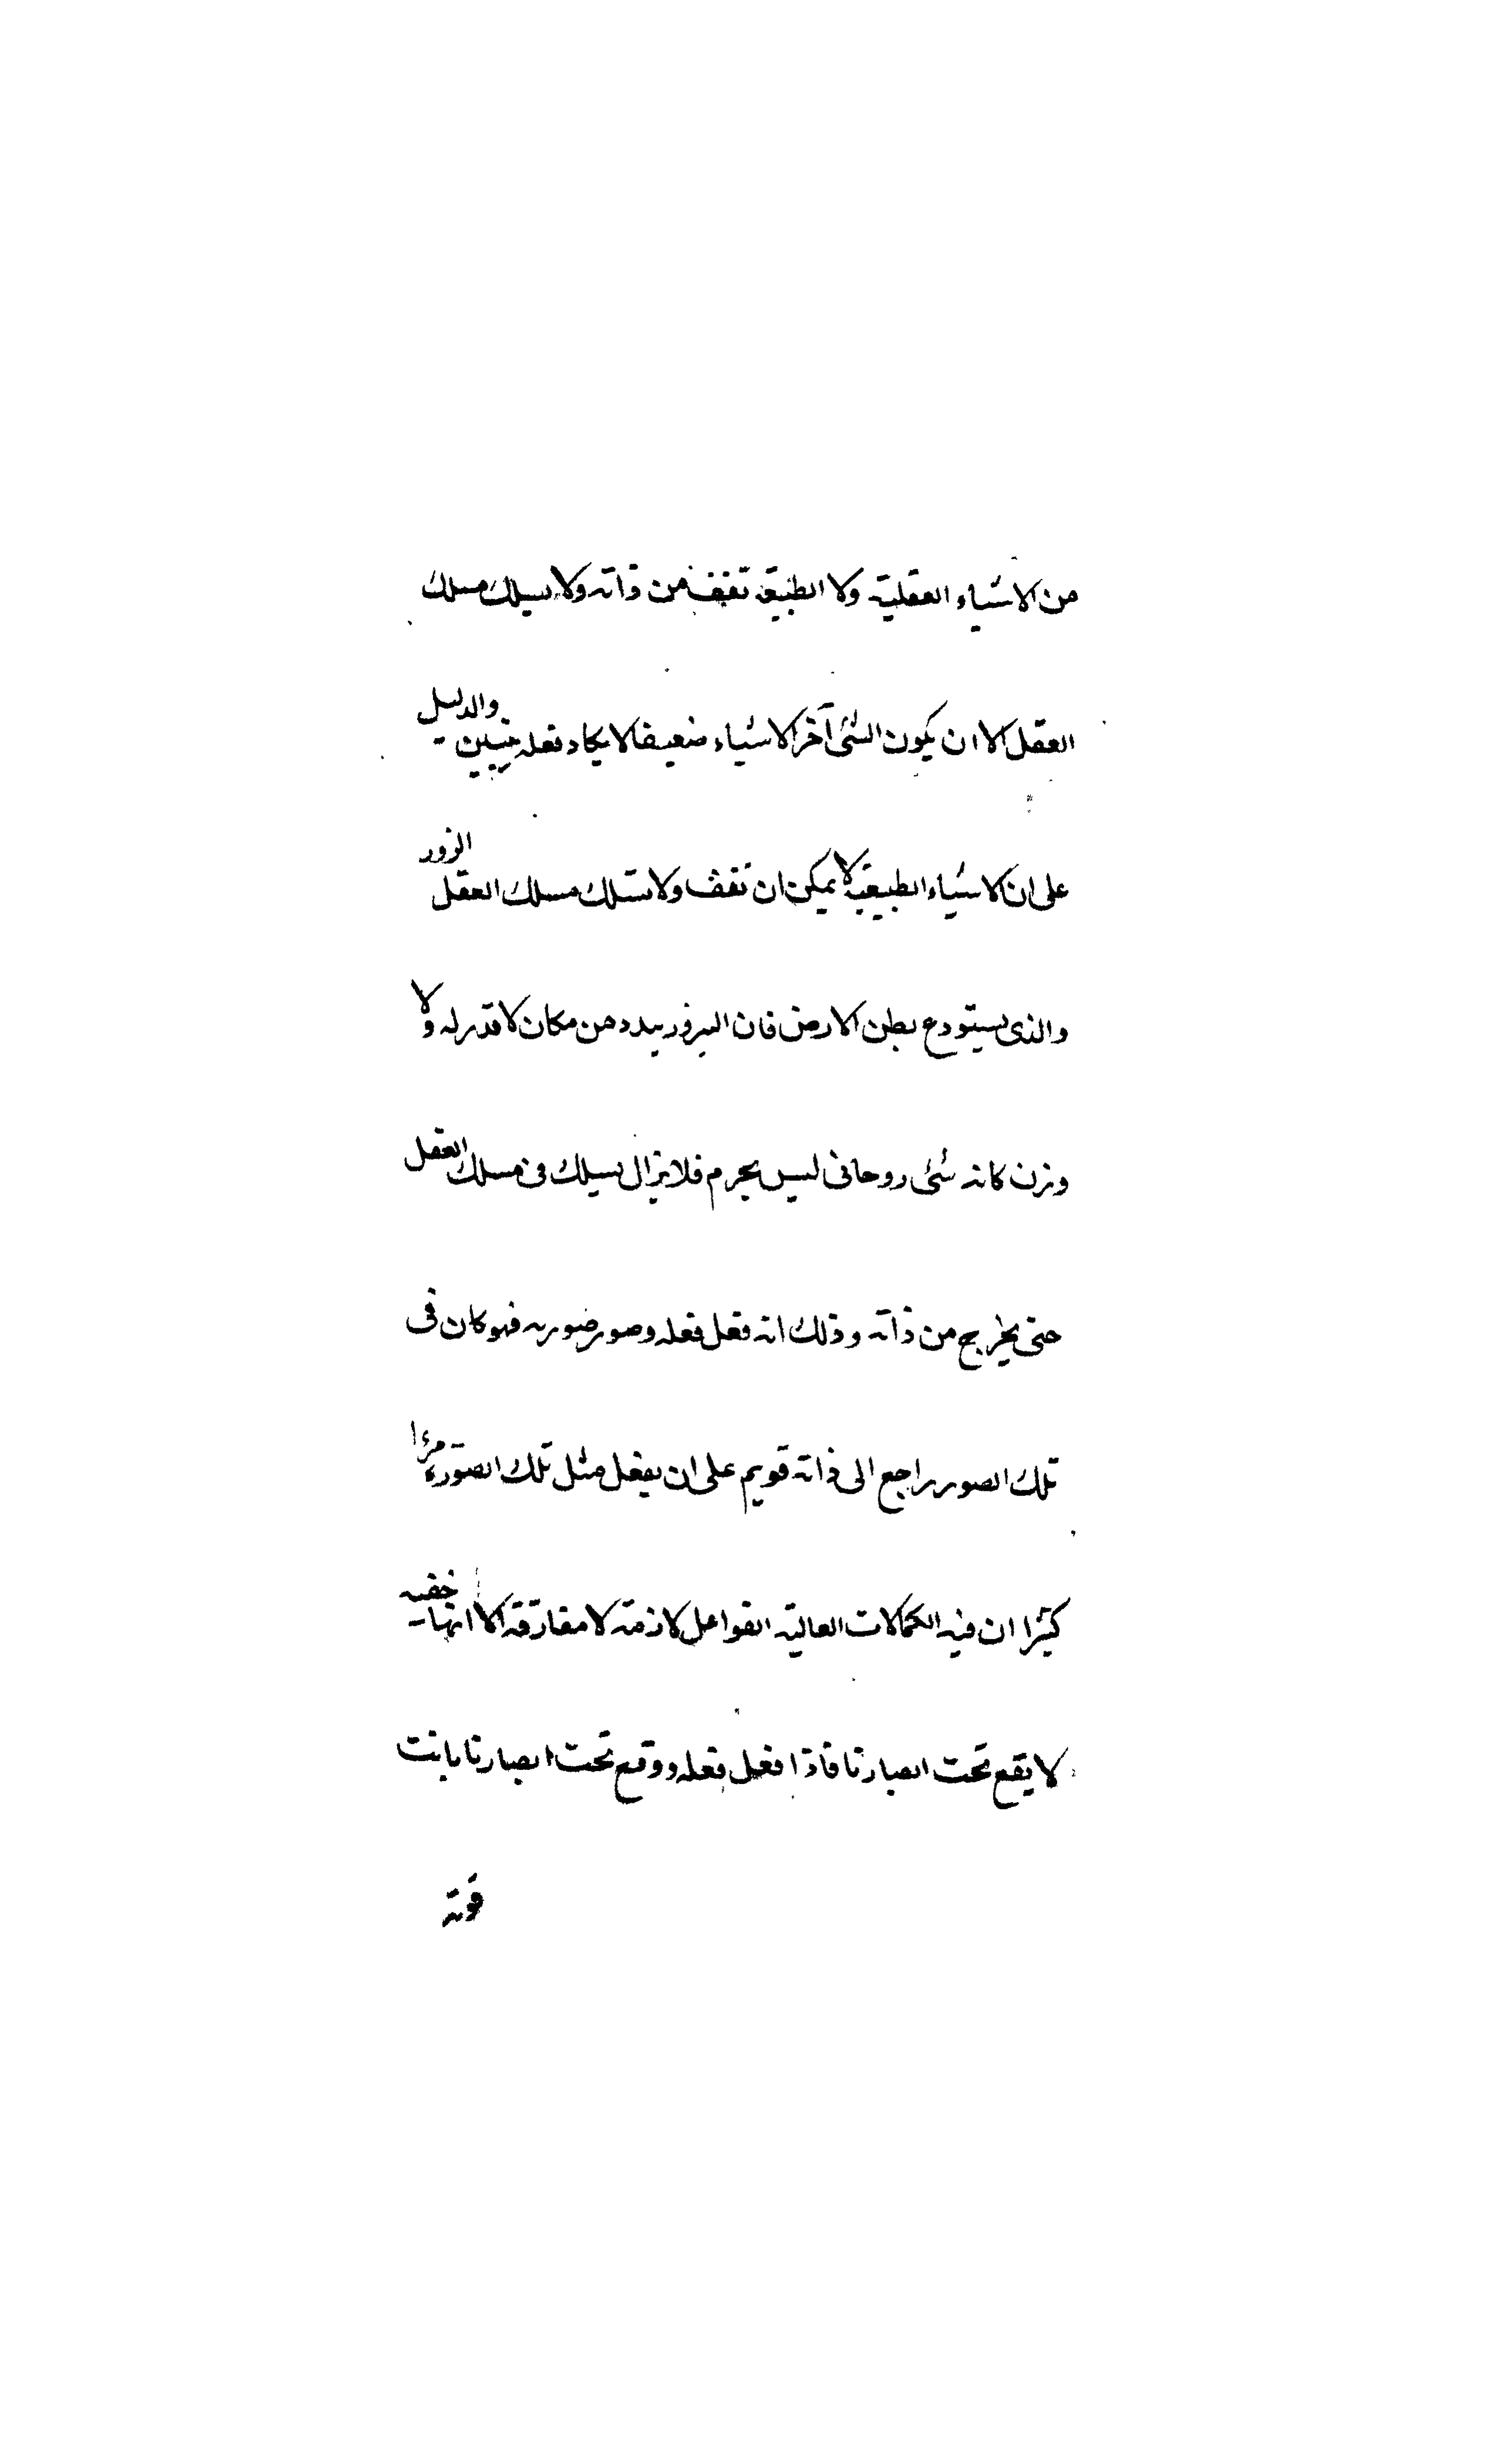 من الاشياء العقلية ولا الطبيقة تقف من ذاته ولا يسلك مسلك
العقل الا ان يكون الشئ آخر الاشياء ضعيفا لا يكاد فعله يتبين والدليل
على ان الاشياء الطبيقية لا يمكن ان تقف ولا تسلك مسلك العقل الزور
والذى يستودع بطن الارض فان البزور يبدد من مكان لا قدر له ولا
وزن كانه شئ روحانى ليس بجرم فلا يزال يسلك فى مسلك العقل
حتى يخرج من ذاته وذلك انه فعل فعله وصور صورته فهو كان فى
تلك الصور راجع الى ذاته قويم على ان يفعل مثل تلك الصورة مرءا
كثيرا ان فيه الكمالات العالية الفواعل لازمة لا مفارقة الا انها خفيه
لا يقع تحت ابصارنا فاذا فعل فعله ووقع تحت ابصارنا بانت
قوته